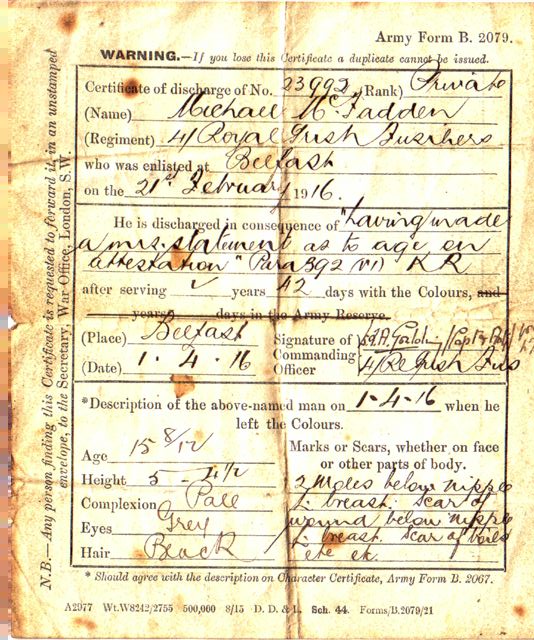 Army Form B. 2079.
WARNING.—If you lose this Certificate a duplicate cannot be issued.
Certificate of discharge of No. 23992 (Rank) Private
(Name) Michael McFadden
(Regiment) 4/ Royal Irish Fusiliers
who was enlisted at Belfast
on the 21st February 1916.
He is discharged in consequence of "having made
a mis-statement as to age on
attestation" Para 392 (VI) KR
after serving years 42 days with the Colours, and
years days in the Army Reserve.
(Place) Belfast Signature of
Commanding
(Date) 1-4-16 Officer 4/ R Irish Fus
*Description of the above-named man on 1-4-16 when he
left the Colours.
Age 15 8/12
Height 5 - 4 1/2
Complexion Pale
Eyes Grey
Hair Black
Marks or Scars, whether on face
or other parts of body.
2 Moles below nipple
L. breast. Scar of
wound below nipple
L. breast. Scar of boils
* Should agree with the description on Character Certificate, Army Form B. 2067.
A2977 Wt.W8242/2755 500,000 8/15 D. D. & L. Sch. 44. Forms/B.2079/21
N.B.—Any person finding this Certificate is requested to forward it, in an unstamped
envelope, to the Secretary, War Office, London, S.W.